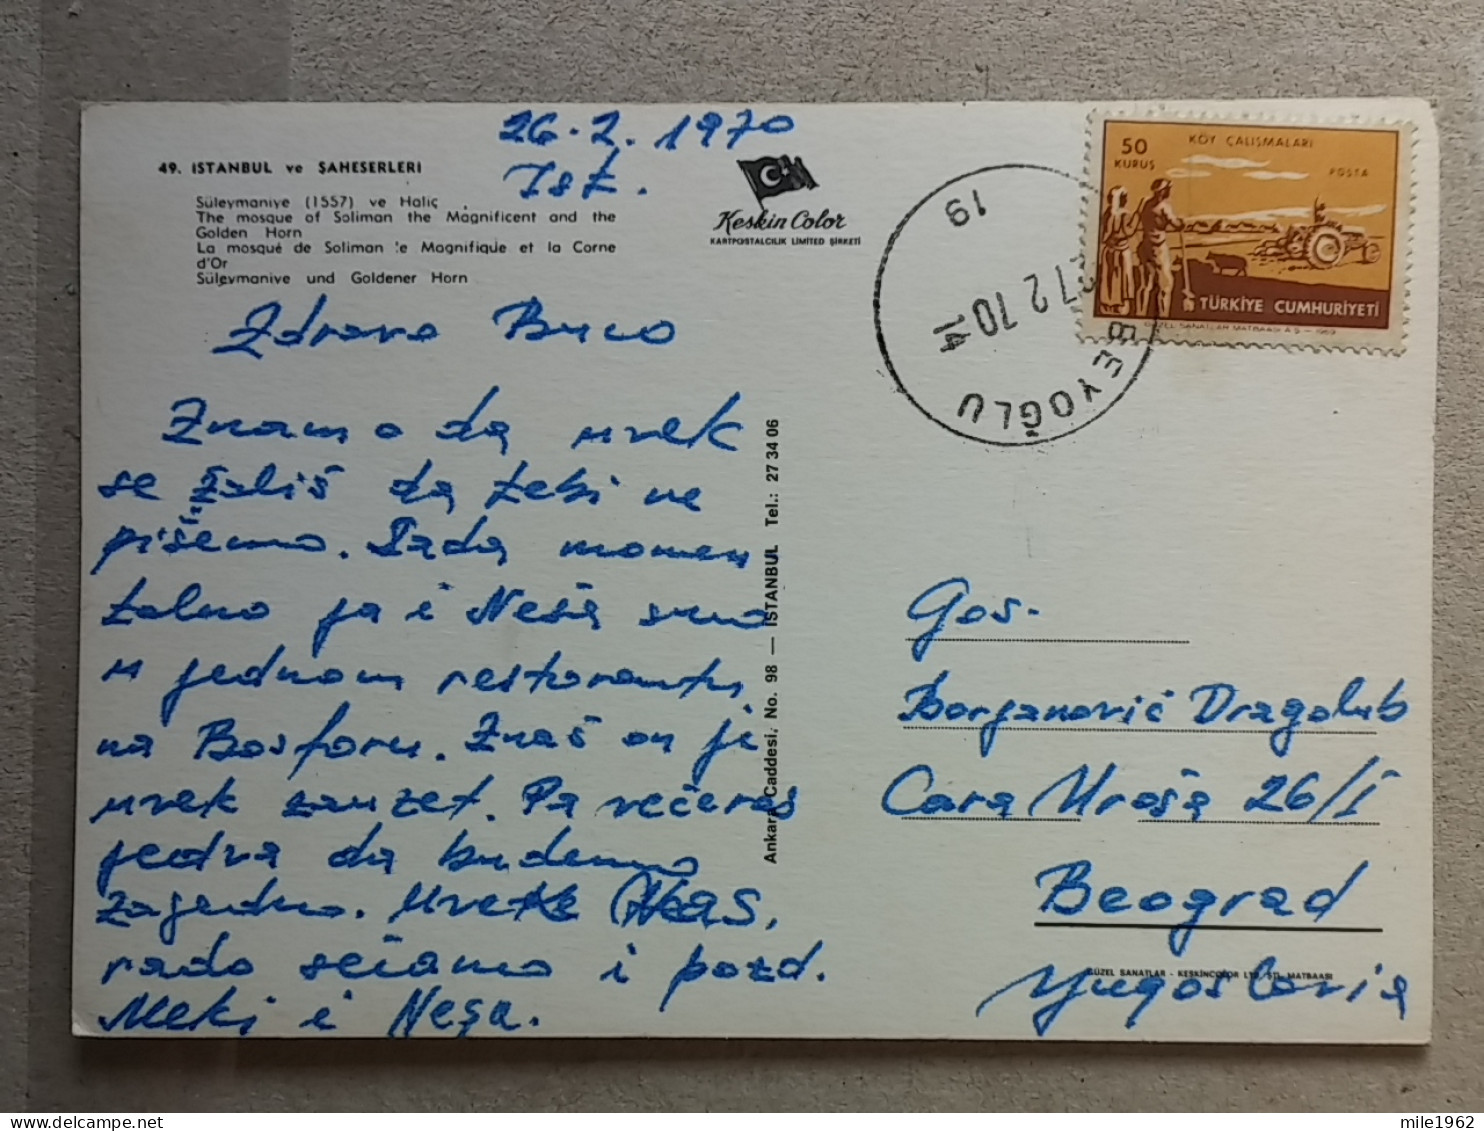 26.2.1970
Ist.
49. İSTANBUL ve ŞAHESERLERİ
Süleymaniye (1557) ve Haliç
The mosque of Soliman the Magnificent and the
Golden Horn
La mosqué de Soliman le Magnifique et la Corne
d'Or
Süleymaniye und Goldener Horn
Keskin Color
KARTPOSTALCILIK LIMITED ŞIRKETI
Zdravo Buco
Znamo da uvek
se žališ da tebi ne
pišemo. Sada momen
talno ja i Neša smo
u jednom restorantu
na Bosforu. Znaš on je
uvek zauzet. Pa večeras
jedva da budemo
zajedno. Uvek
rado sećamo i pozd.
Meki i Neşa.
Ankara Caddesi, No. 98 — İSTANBUL Tel.: 27 34 06
50
KURUŞ
KÖY ÇALIŞMALARI
POSTA
TÜRKİYE CUMHURİYETİ
GÜZEL SANATLAR MATBAASI A.Ş. - 1969
19
27 2 70 14
BEYOĞLU
Gos.
Borjanović Dragolub
Cara Uroša 26/I
Beograd
Yugoslavia
GÜZEL SANATLAR - KESKİNCOLOR LTD. ŞTİ. MATBAASI
mile1962